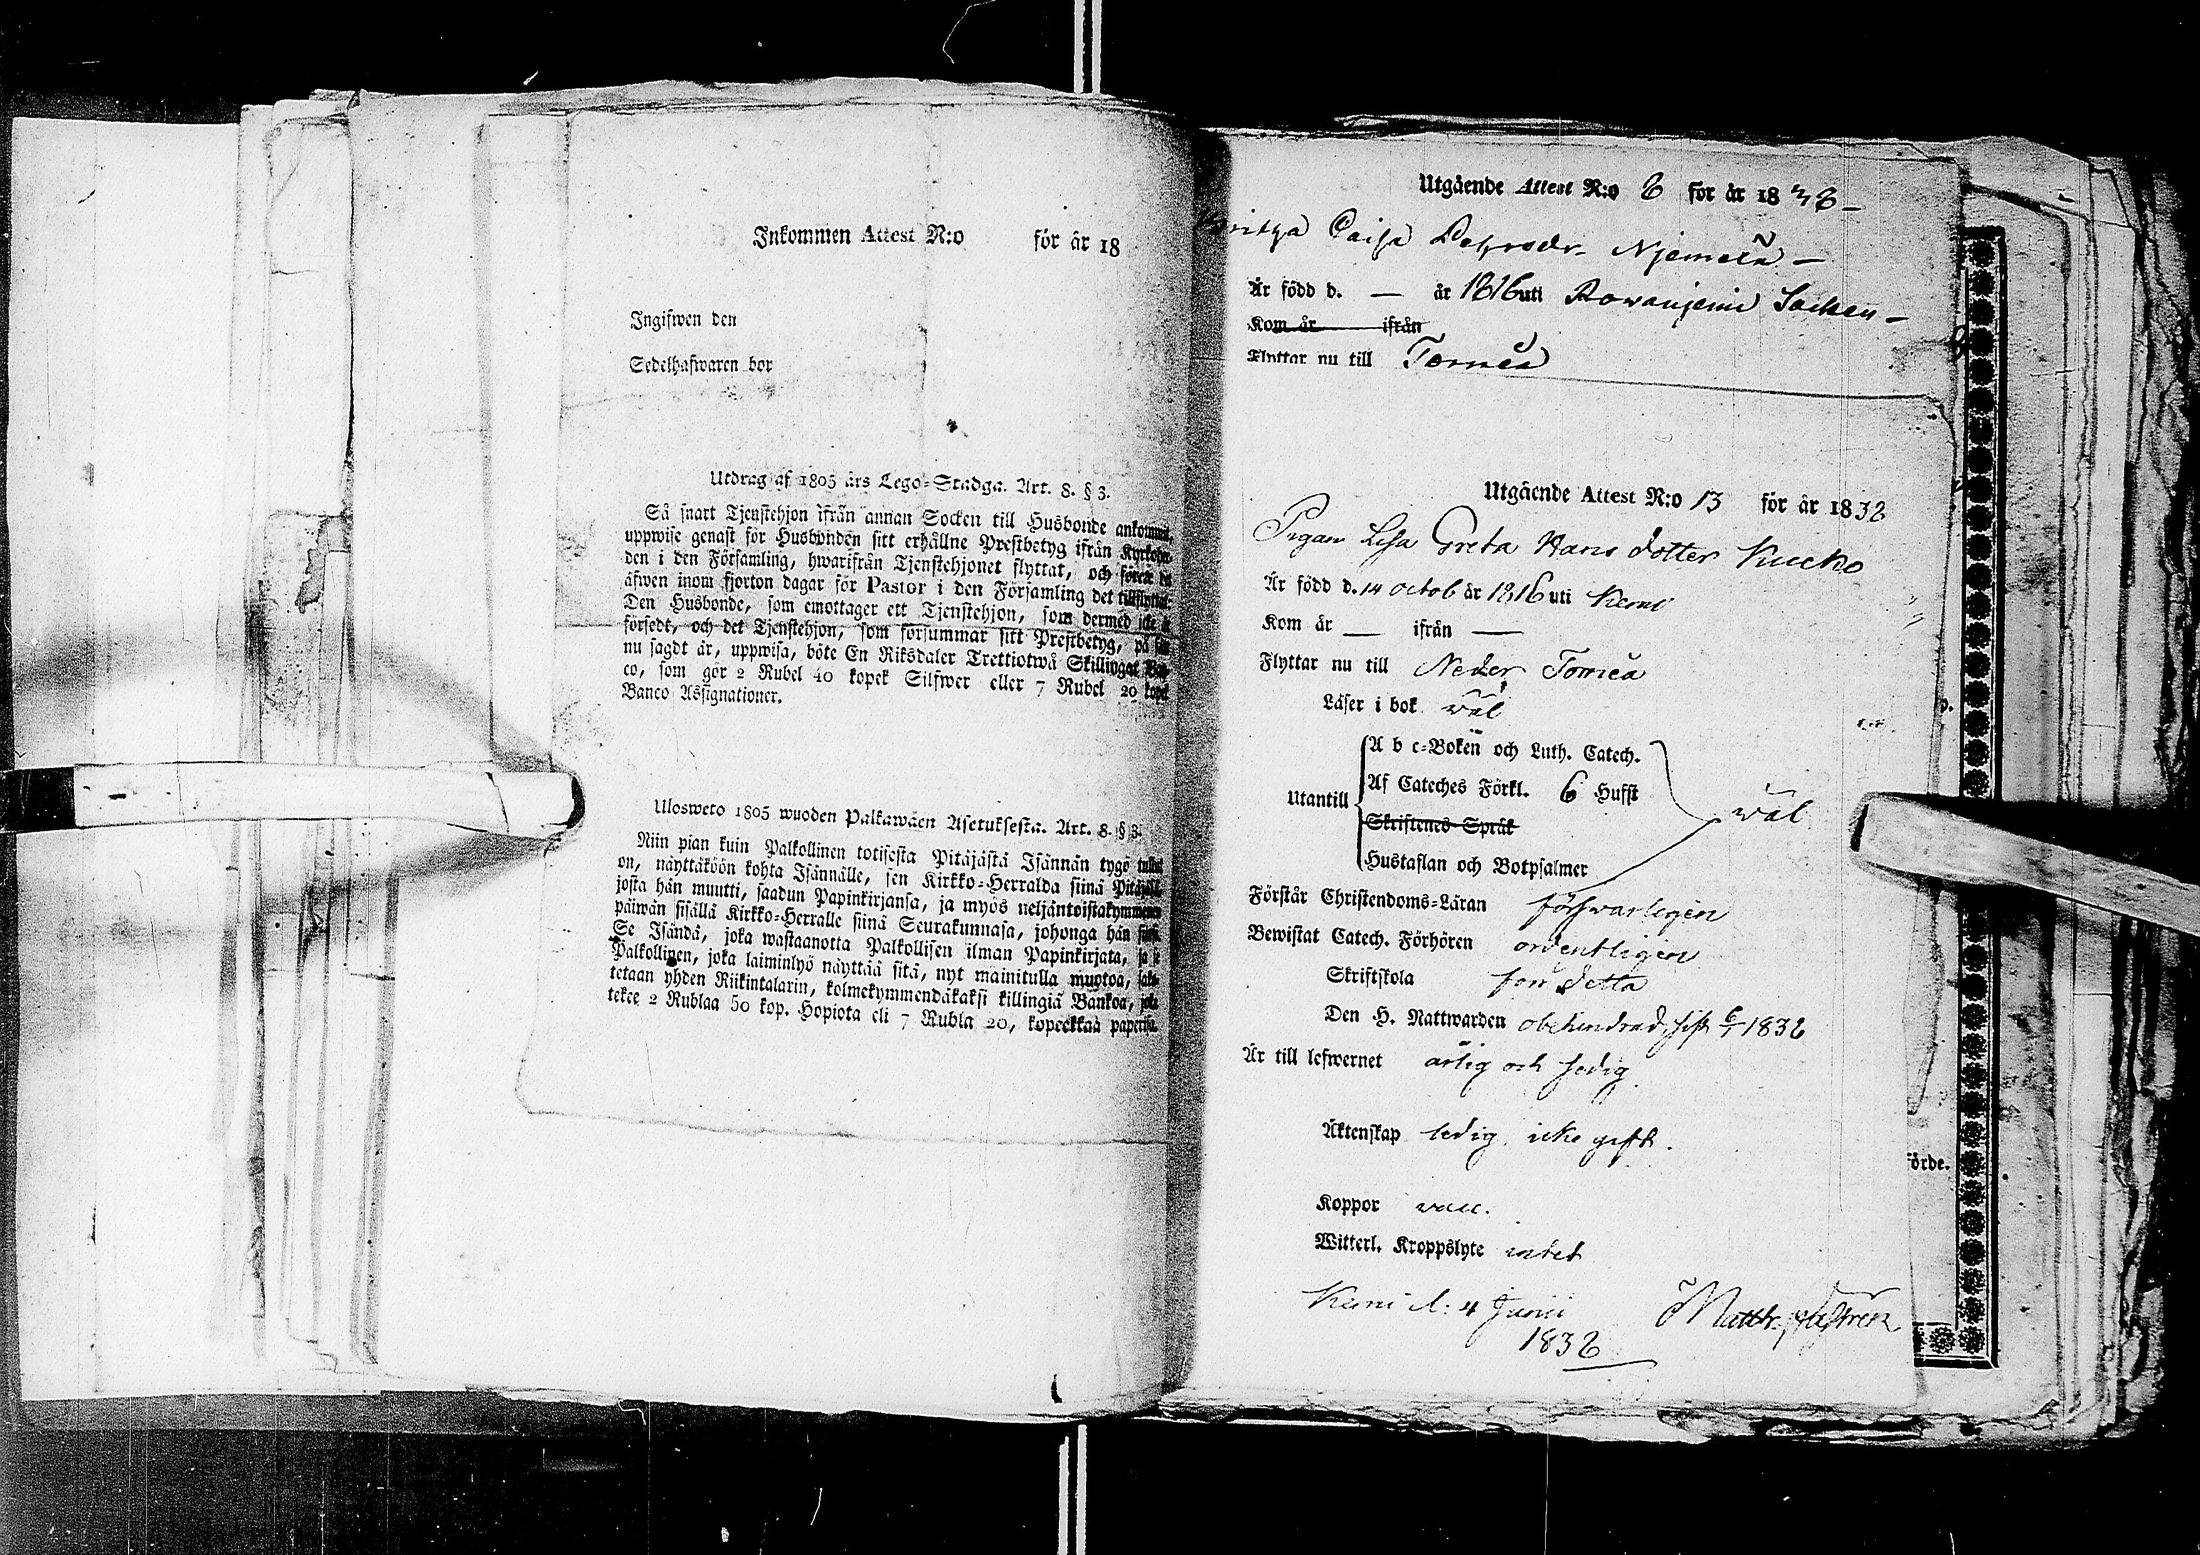 Inkommen Attest N:o för år 18
Ingifwen den
Sedelhafwaren bor
Utdrag af 1805 års Lego-Stadga. Art. 8. § 3.
Så snart Tjenstehjon ifrån annan Socken till Husbonde ankommit,
uppwise genast för Husbonden sitt erhållne Prestbetyg ifrån
den i den Församling, hwarifrån Tjenstehjonet flyttat, och
äfwen inom fjorton dagar för Pastor i den Församling det
Den Husbonde, som emottager ett Tjenstehjon, som dermed icke är
försedt, och det Tjenstehjon, som försummar sitt Prestbetyg, på sätt
nu sagdt är, uppwisa, böte En Riksdaler Trettiotwå Skillingar Ban-
co, som gör 2 Rubel 40 kopek Silfwer eller 7 Rubel 20 kopek
Banco Assignationer.
Ulosweto 1805 wuoden Palkawäen Asetuksesta. Art. 8. § 3.
Niin pian kuin Palkollinen totisesta Pitäjästä Isännän tygö tullut
on, näyttäköön kohta Isännälle, sen Kirkko-Herralda siinä
josta hän muutti, saadun Papinkirjansa, ja myös neljäntoistakymmenen
päiwän sisällä Kirkko-Herralle siinä Seurakunnasa, johonga hän
Se Isändä, joka wastaanotta Palkollisen ilman Papinkirjata, ja se
Palkollinen, joka laiminlyö näyttää sitä, nyt mainitulla muotoa,
tetaan yhden Riikintalarin, kolmekymmendäkaksi killingiä Bankoa, joka
tekee 2 Rublaa 50 kop. Hopiota eli 7 Rubla 20, kopeekkaa paperisa.
Utgående Attest N:o 8 för år 18
Britha Caisa Pehrsdr. Njemelä —
Är född d. — år 1816 uti Rowanjemi Socken —
Kom år ifrån
Flyttar nu till Torneå
Utgående Attest N:o 13 för år 1832
Pigan Lisa Greta Hans dotter Kucko
Är född d. 14 octob år 1816 uti Kemi
Kom år — ifrån —
Flyttar nu till Neder Torneå
Läser i bok wäl
A b c-Boken och Luth. Catech.
Af Cateches Förkl. 6 Hufst
Utantill wäl
Skriftenes Språk
Hustaflan och Botpsalmer
Förstår Christendoms-Läran förswarligen
Bewistat Catech. Förhören ordentligen
Skriftskola för detta
Den H. Nattwarden obehindrad, sist 1832
Är till lefwernet ärlig och sedig
Äktenskap ledig icke gift.
Koppor vacc.
Witterl. Kroppslyte intet
Kemi d: 4 Junii
1832
Matth. Castrén
örde.